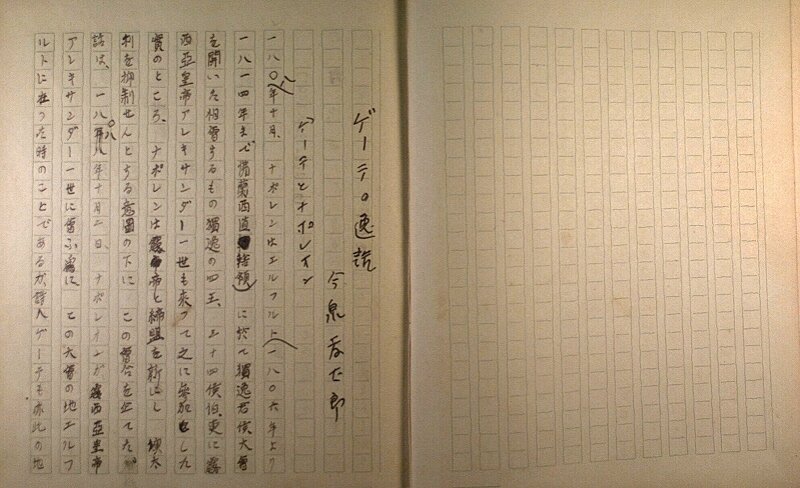 ゲーテの逸話
今泉 七郎
ゲーテとナポレイン
一八〇八年十月、ナポレンはエルフルト(一八〇六年より
一八一四年まで佛蘭西直轄領)に於て獨逸君侯大會
を開いた相會するもの獨逸の四王、三十四侯伯、更に露
西亞皇帝アレキサンダー一世も来つて之に參加した
實のところ、ナポレンは露帝と締盟を新にし 墺太
利を抑制せんとする意圖の下に この會合を企てたが
話は、一八〇八年十月二日、ナポレインが露西亞皇帝
アレキサンダー一世に會ふ為に この大會の地エルフ
ルトに在つた時のことであるが、詩人ゲーテも亦此の地